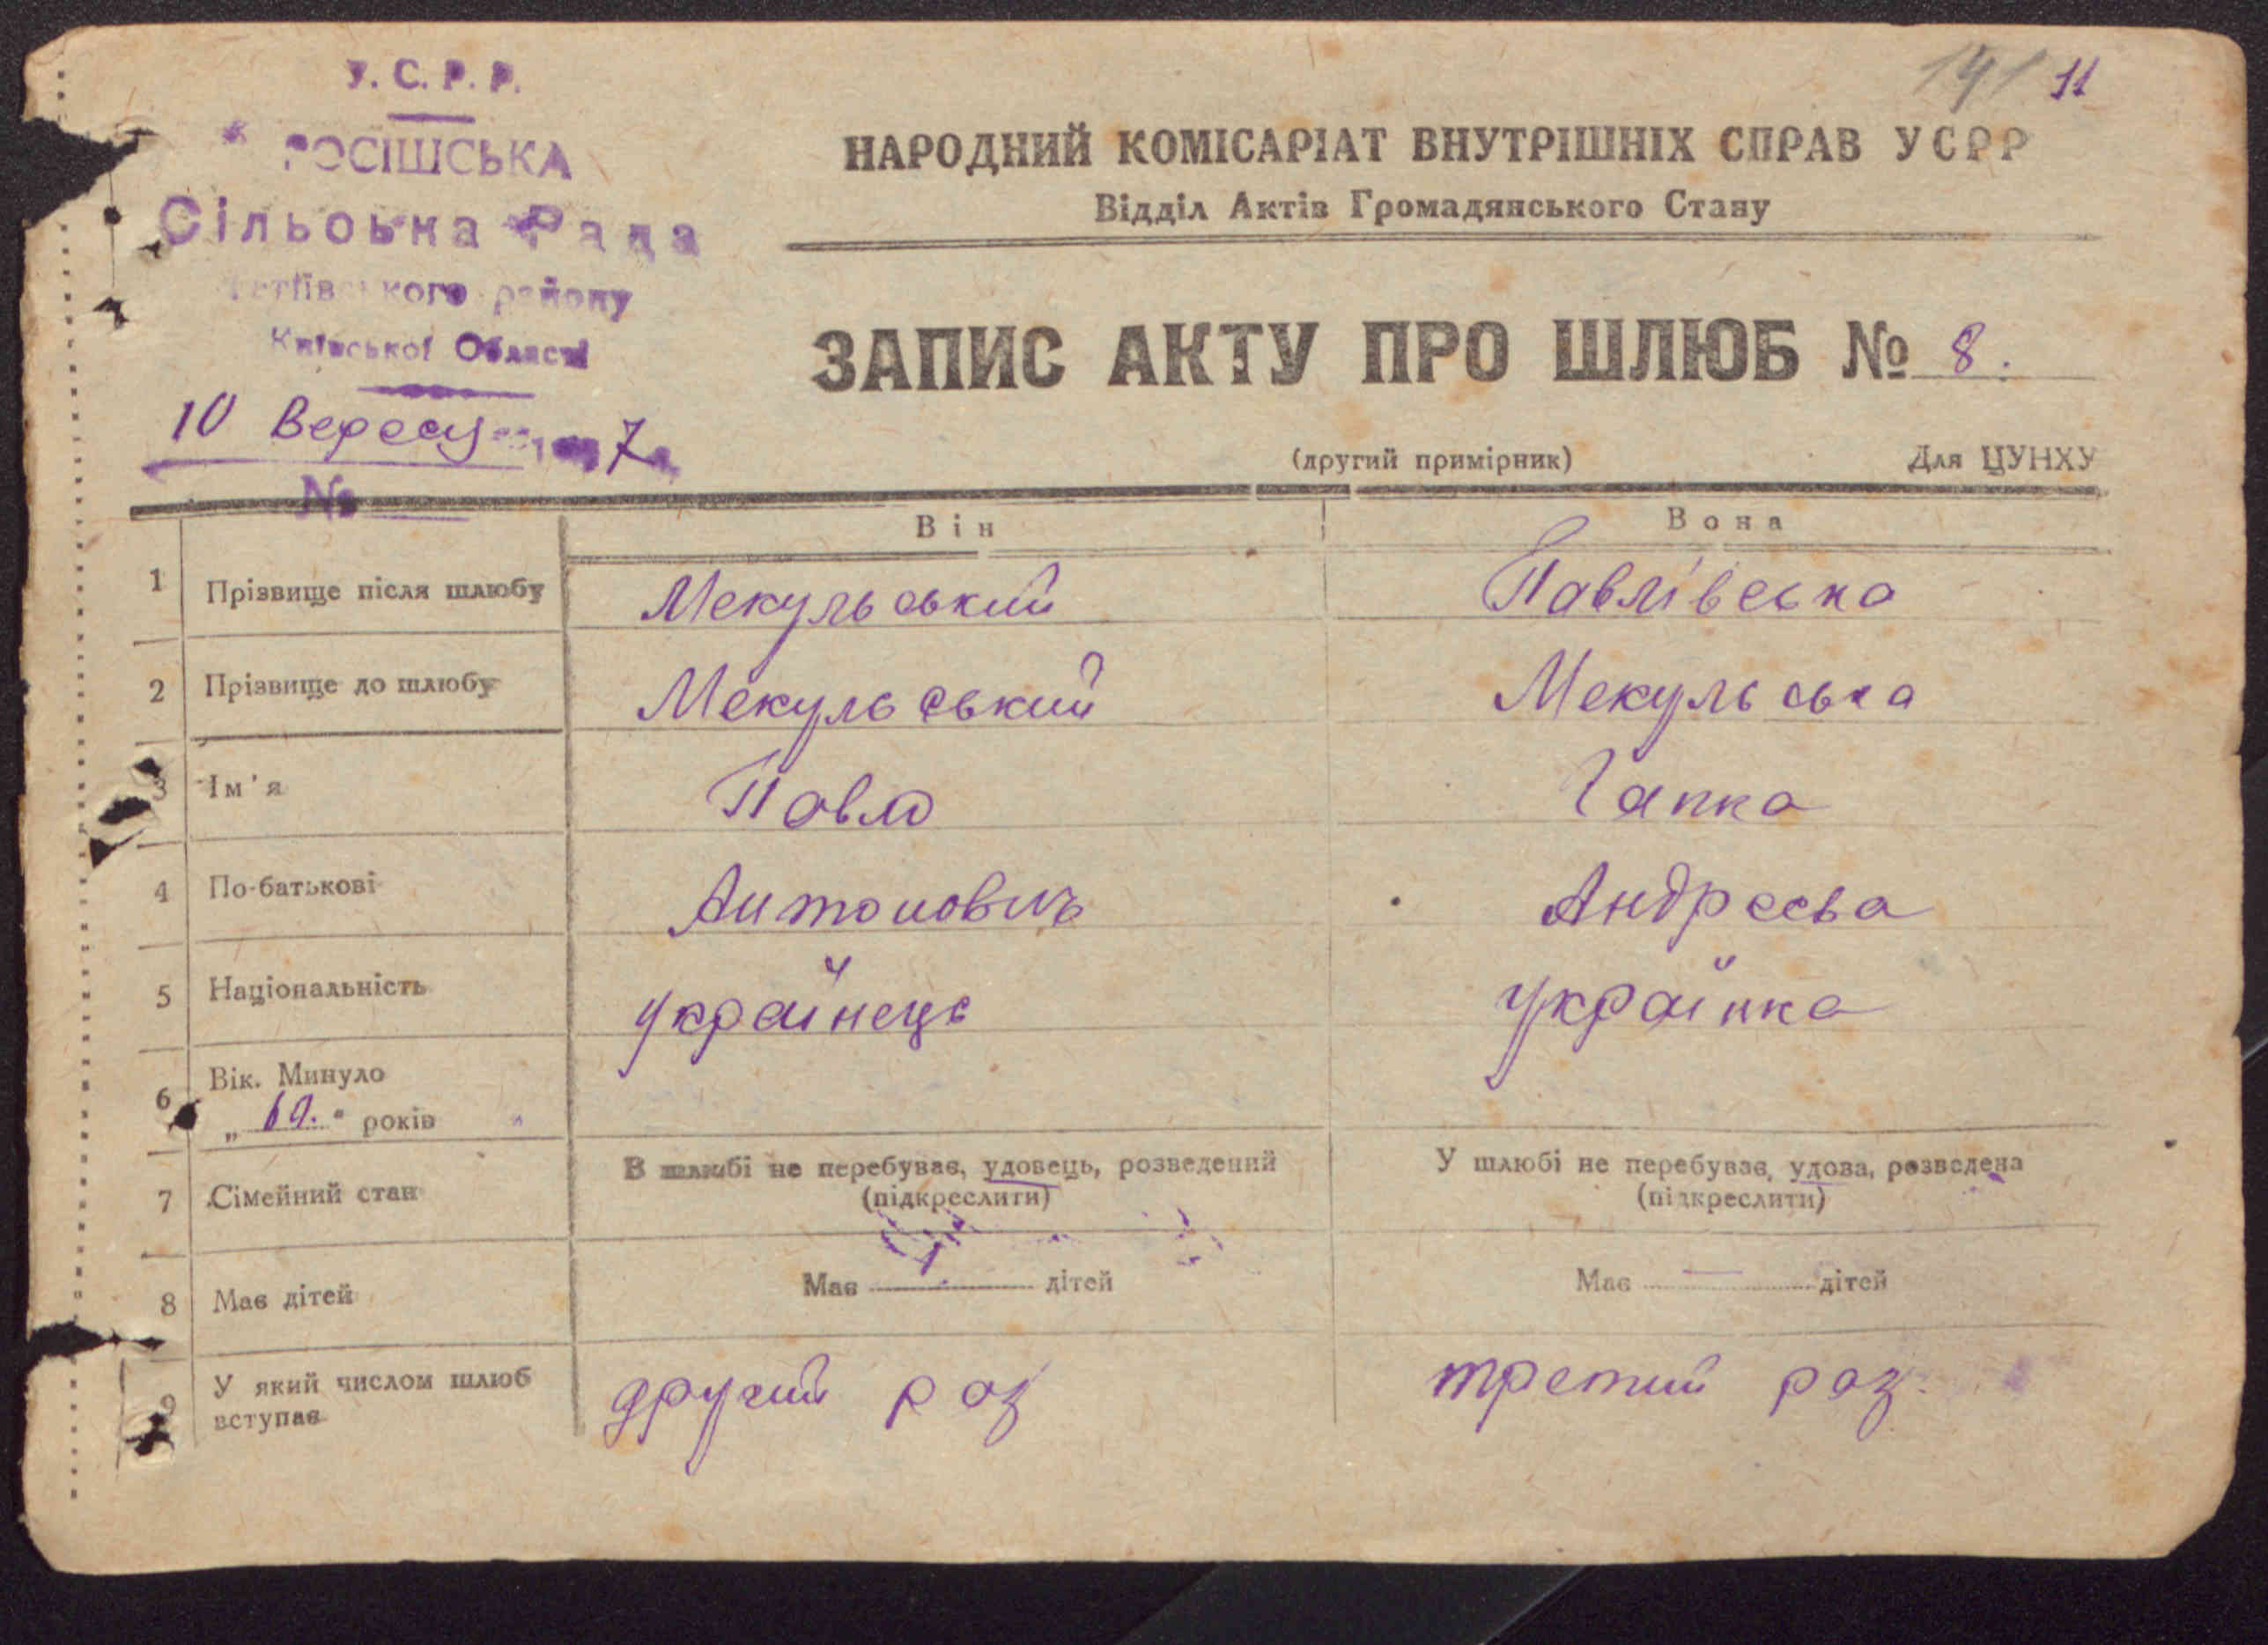 У. С. Р. Р.
РОСІШСЬКА
Сільська Рада
Тетіївського району
Київської Області
10 Вересн 1937
№
11
НАРОДНИЙ КОМІСАРІАТ ВНУТРІШНІХ СПРАВ УСРР
Відділ Актів Громадянського Стану
ЗАПИС АКТУ ПРО ШЛЮБ № 8.
(другий примірник) Для ЦУНХУ
Він Вона
1 Прізвище після шлюбу Мекульський Павлівська
2 Прізвище до шлюбу Мекульський Мекульська
3 Ім'я Павло Гапка
4 По-батькові Антонович Андреєва
5 Національність українець українка
6 Вік. Минуло
„ 69. “ років "
7 Сімейний стан В шлюбі не перебував, удовець, розведений У шлюбі не перебував, удова, розведена
(підкреслити) (підкреслити)
8 Має дітей Має дітей Має — дітей
9 У який числом шлюб вступає другий раз третий раз